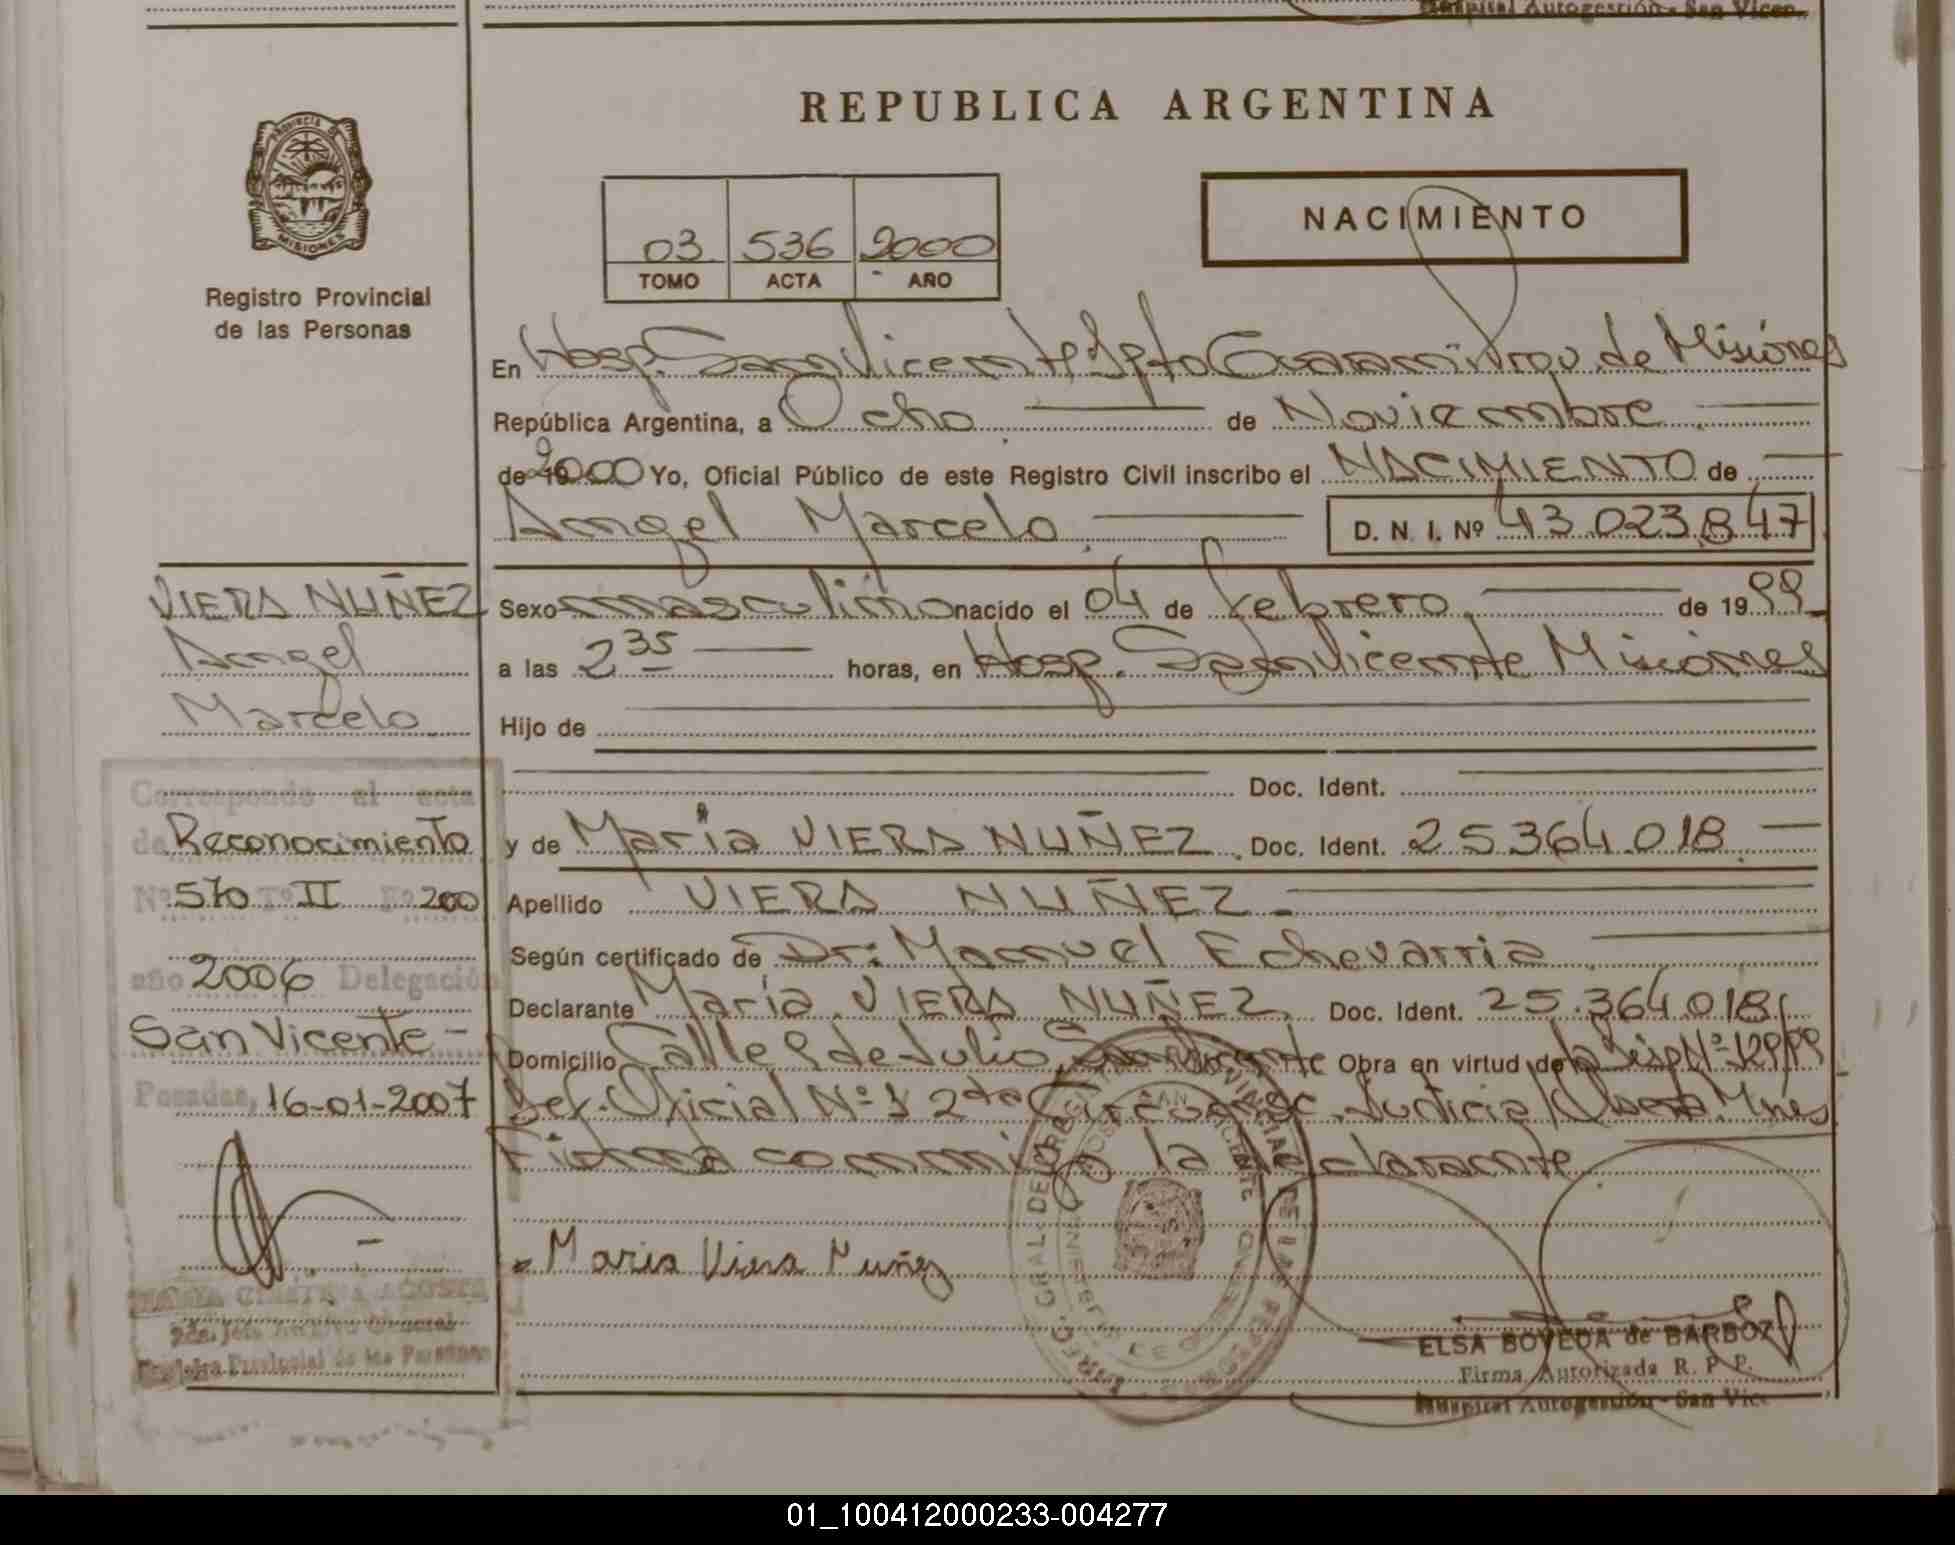 Hospital Autogestión - San Vicen.
REPUBLICA ARGENTINA
PROVINCIA DE
MISIONES
Registro Provincial
de las Personas
03 536 2000
TOMO ACTA AÑO
NACIMIENTO
En Hosp. San Vicente Dpto Guaraní Prov. de Misiones
República Argentina, a Ocho de Noviembre
de 19 2000 Yo, Oficial Público de este Registro Civil inscribo el NACIMIENTO de
Angel Marcelo D. N. I. Nº 43.023.847
VIERA NUÑEZ
Angel
Marcelo
Sexo masculino nacido el 04 de febrero de 1999
a las 2 35 horas, en Hosp. San Vicente Misiones
Hijo de
Doc. Ident.
y de María VIERA NUÑEZ. Doc. Ident. 25.364.018
Apellido VIERA NUÑEZ
Según certificado de Dr: Manuel Echevarria
Declarante María VIERA NUÑEZ Doc. Ident. 25.364.018
Domicilio Calle 9 de Julio San Vicente Obra en virtud de la Disp Nº 12999
Def. Oficial Nº 1 2da Circunsc. Judicial Mnes
Firma conmigo la declarante
Maria Viera Nuñez
Corresponde al acta
de Reconocimiento
Nº 570 Tº II Fº 200
año 2006 Delegación
San Vicente -
Posadas, 16-01-2007
Registro Provincial de las Personas
SAN VICENTE
ELSA BOVEDA de BARBOZA
Firma Autorizada R. P. P.
Hospital Autogestión - San Vic
01_100412000233-004277